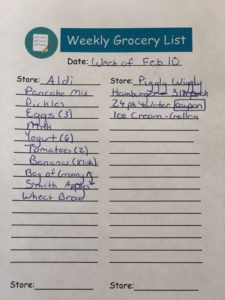 Weekly Grocery List
Date: Week of Feb 10
Store: Aldi
Pancake Mix
Pickles
Eggs (3)
Milk
Yogurt (6)
Tomatoes (2)
Bananas
Bag of
Smith Apples
Wheat Bread
Store: Piggly Wiggly
Hamburger - 3 lb
24 pk Water (coupon)
Ice Cream - Gallon
Store:
Store: